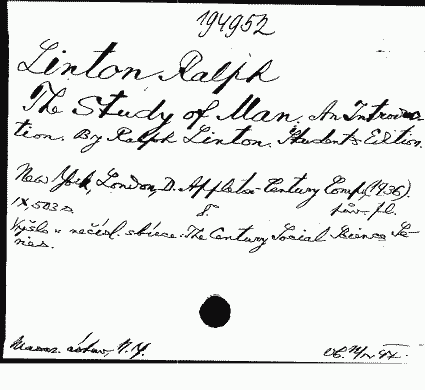 194952
Linton Ralph
The Study of Man. An Introduc-
tion. By Ralph Linton. Students Edition.
New York, London, D. Appleton-Century Comp. (1936).
IX, 503 s. 8° pův. pl.
Vyšlo v nečísl. sbírce: The Century Social Science Se-
ries.
Masar. ústav, N.Y.